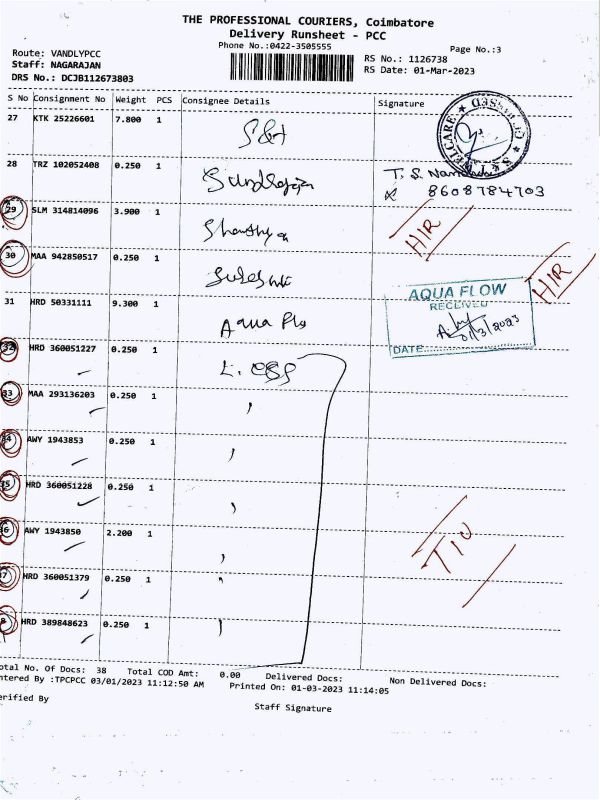 THE PROFESSIONAL COURIERS, Coimbatore
Delivery Runsheet - PCC
Phone No.:0422-3505555
Page No.:3
Route: VANDLYPCC
Staff: NAGARAJAN
DRS No.: DCJB112673803
RS No.: 1126738
RS Date: 01-Mar-2023
S No Consignment No Weight PCS Consignee Details Signature
27 KTK 25226601 7.800 1 S&T
28 TRZ 102052408 0.250 1
8608784703
29 SLM 314814096 3.900 1 HIR
30 MAA 942850517 0.250 1 HIR
31 HRD 50331111 9.300 1 Aqua Flo
AQUA FLOW
RECEIVED
01/3/2023
DATE
32 HRD 360051227 0.250 1
33 MAA 293136203 0.250 1
34 AWY 1943853 0.250 1
35 HRD 360051228 0.250 1
36 AWY 1943850 2.200 1
37 HRD 360051379 0.250 1
HRD 389848623 0.250 1
otal No. Of Docs: 38 Total COD Amt: 0.00 Delivered Docs: Non Delivered Docs:
ntered By :TPCPCC 03/01/2023 11:12:50 AM Printed On: 01-03-2023 11:14:05
erified By
Staff Signature